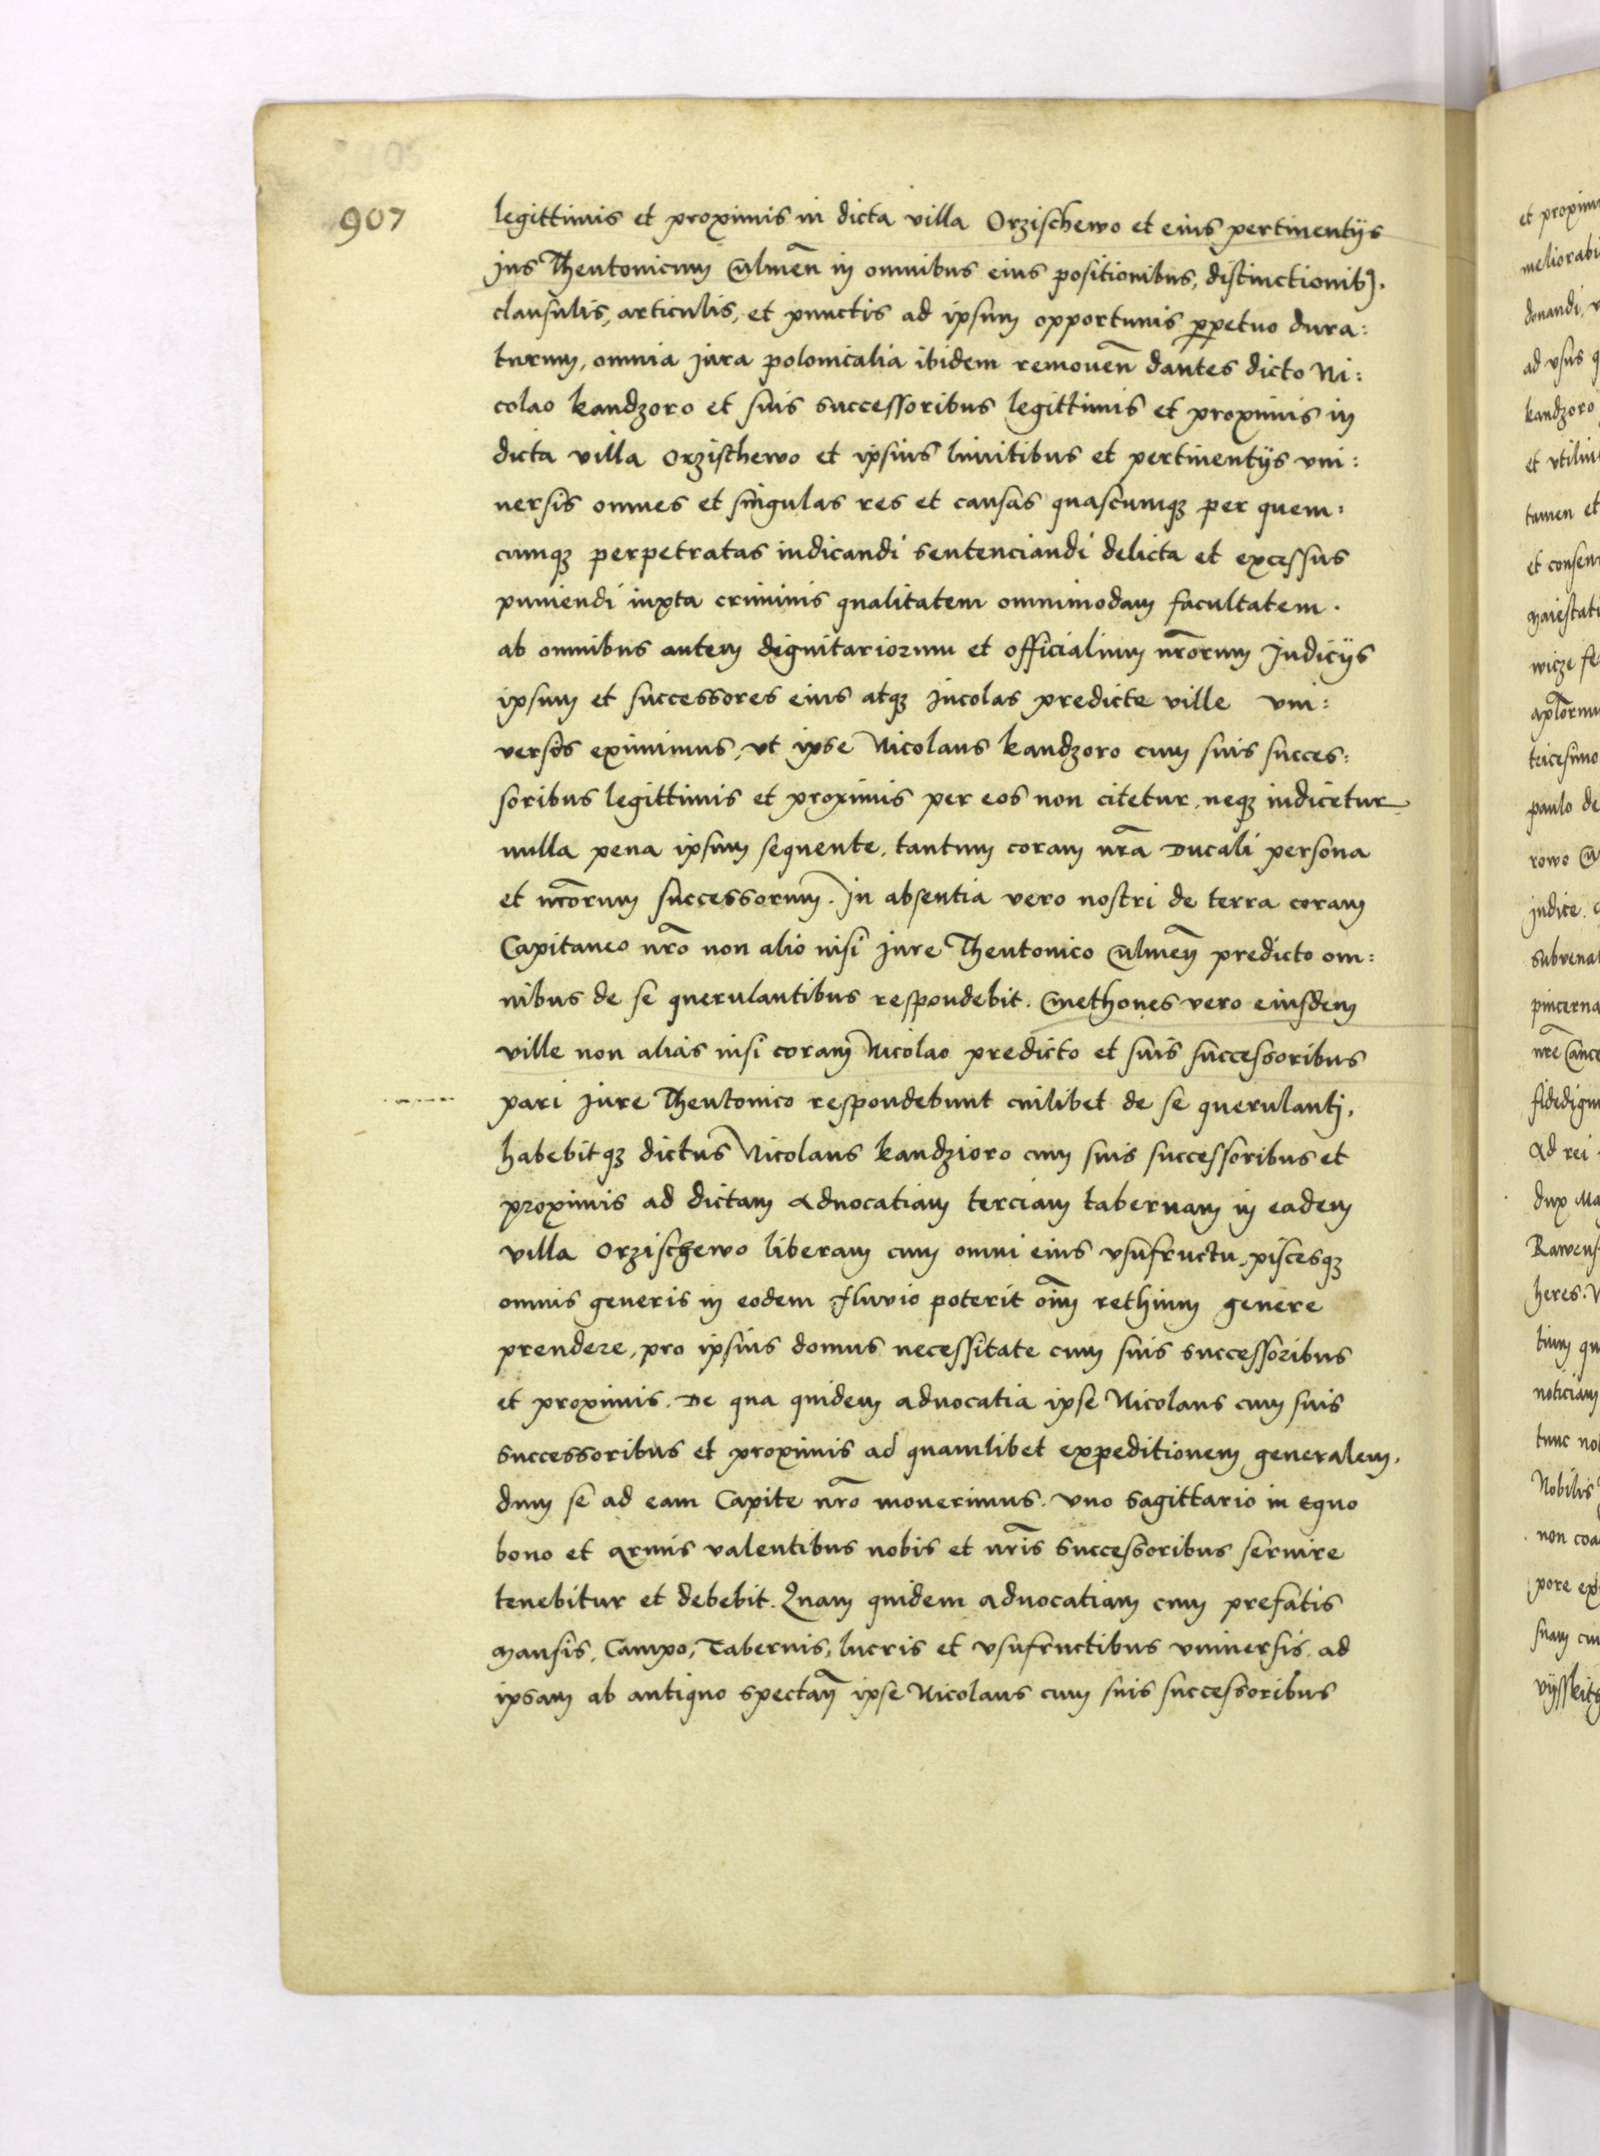 907
legittimis et proximis in dicta villa Orzischewo et eius pertinentijs
jus Theutonicum Culmen̄ in omnibus eius positionibus, distinctionibꝫ.
clausulis, articulis, et punctis ad ipsum opportunis ꝑpetuo dura:
turum, omnia jura polonicalia ibidem remouen̄ dantes dicto Ni:
colao kandzoro et suis successoribus legittimis et proximis in
dicta villa Orzischewo et ipsius limitibus et pertinentijs vni:
uersis omnes et singulas res et causas quascumqꝫ per quem:
cumqꝫ perpetratas iudicandi sentenciandi delicta et excessus
puniendi iuxta criminis qualitatem omnimodam facultatem.
ab omnibus autem dignitariorum et officialium nr̄orum Judicijs
ipsum et successores eius atqꝫ Jncolas predicte ville vni:
versos eximimus, vt ipse Nicolaus kandzoro cum suis succes:
soribus legittimis et proximis per eos non citetur, neqꝫ iudicetur
nulla pena ipsum sequente, tantum coram nr̄a Ducali persona
et nr̄orum successorum. Jn absentia vero nostri de terra coram
Capitaneo nr̄o non alio nisi Jure Theutonico Culmen̄ predicto om:
nibus de se querulantibus respondebit. Cmethones vero eiusdem
ville non alias nisi coram Nicolao predicto et suis successoribus
pari Jure Theutonico respondebunt cuilibet de se querulantj,
habebitqꝫ dictus Nicolaus kandzioro cum suis successoribus et
proximis ad dictam Aduocatiam terciam tabernam in eadem
villa Orzischewo liberam cum omni eius vsufructu, piscesqꝫ
omnis generis in eodem fluvio poterit oīm rethium genere
prendere, pro ipsius domus necessitate cum suis successoribus
et proximis. De qua quidem aduocatia ipse Nicolaus cum suis
successoribus et proximis ad quamlibet expeditionem generalem,
dum se ad eam Capite nr̄o mouerimus. Vno sagittario in equo
bono et armis valentibus nobis et nr̄is successoribus seruire
tenebitur et debebit. Quam quidem aduocatiam cum prefatis
mansis, Campo, Tabernis, lucris et vsufructibus vniuersis ad
ipsam ab antiquo spectan̄ ipse Nicolaus cum suis successoribus